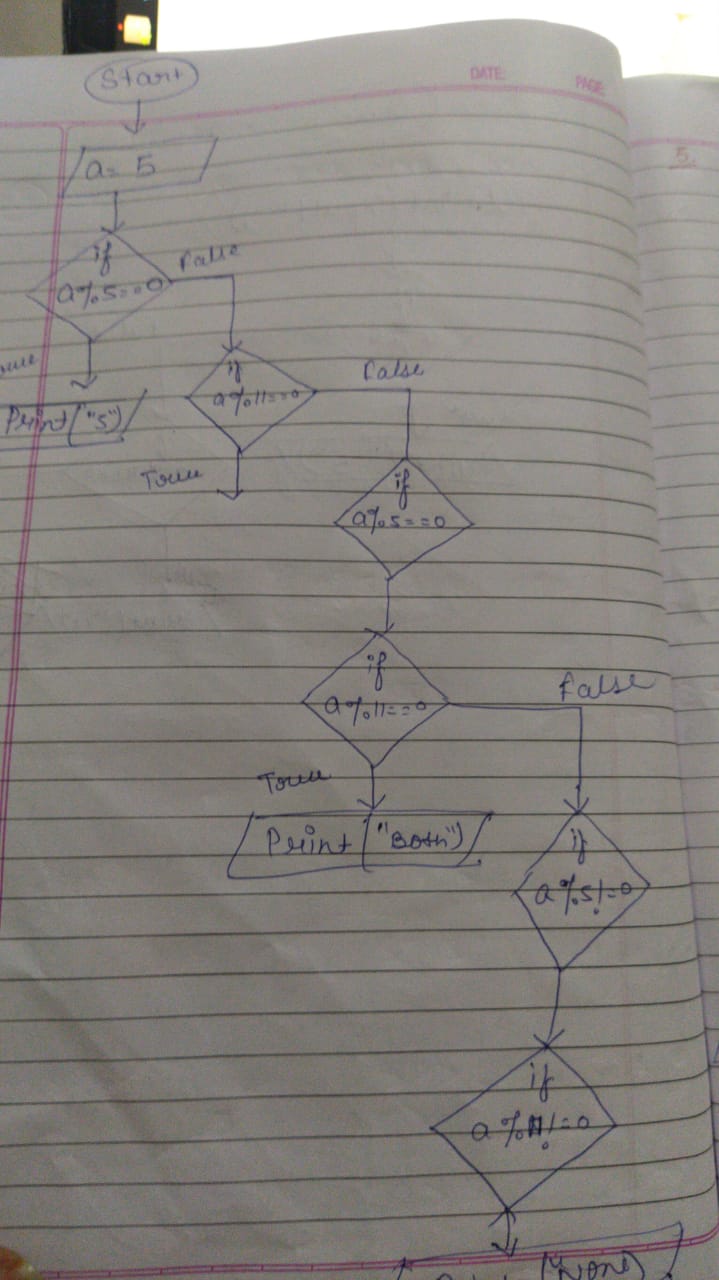 DATE:
PAGE:
Start
5.
a= 5
if
a%5==0
False
True
Print("5")
if
a%11==0
False
True
if
a%5==0
if
a%11==0
False
True
Print("Both")
if
a%5!=0
if
a%11!=0
("None)